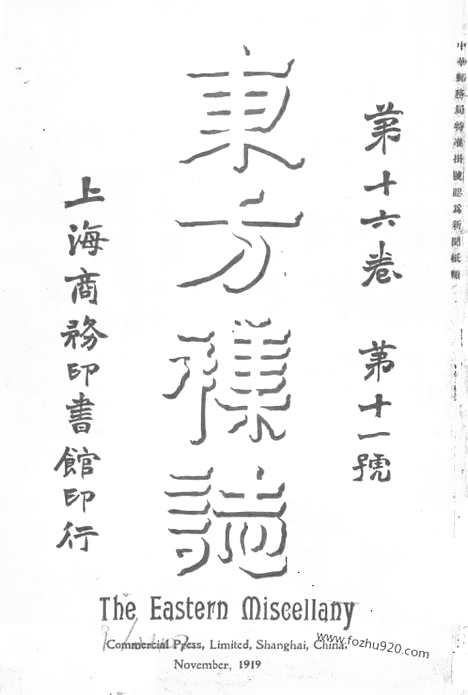 中華郵務局特准掛號認爲新聞紙類
第十六卷 第十一號
東方雜誌
上海商務印書館印行
The Eastern Miscellany
Commercial Press, Limited, Shanghai, China.
November, 1919
www.fozhu920.com